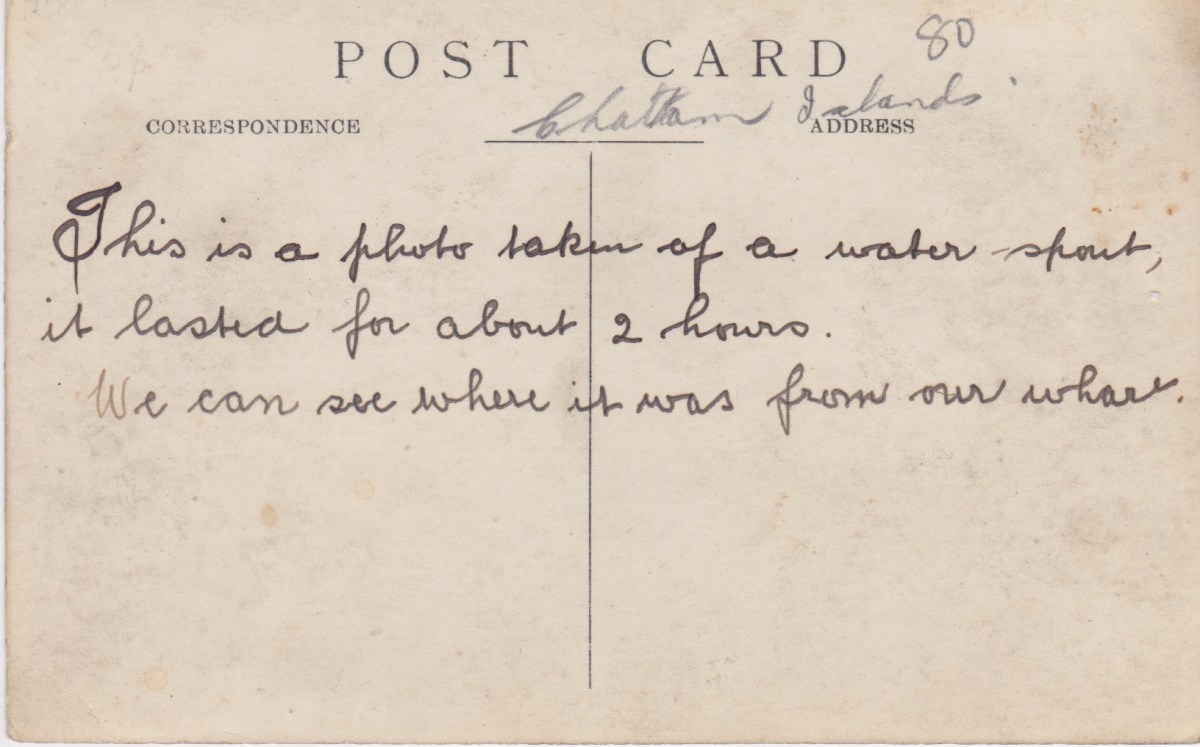 80
POST CARD
Chatham Islands
CORRESPONDENCE ADDRESS
This is a photo taken of a water-spout,
it lasted for about 2 hours.
We can see where it was from our wharf.